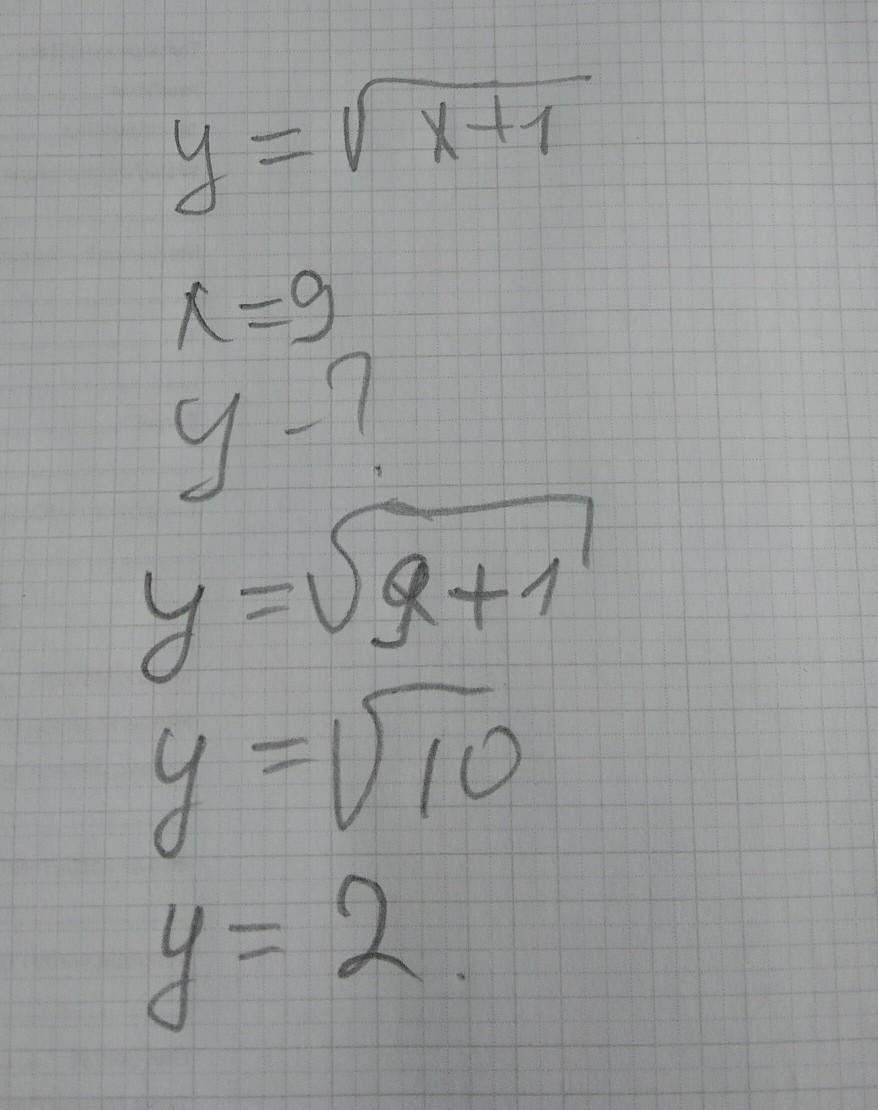 y = √(x+1)
x=9
y-?
y = √(9+1)
y = √10
y = 2.